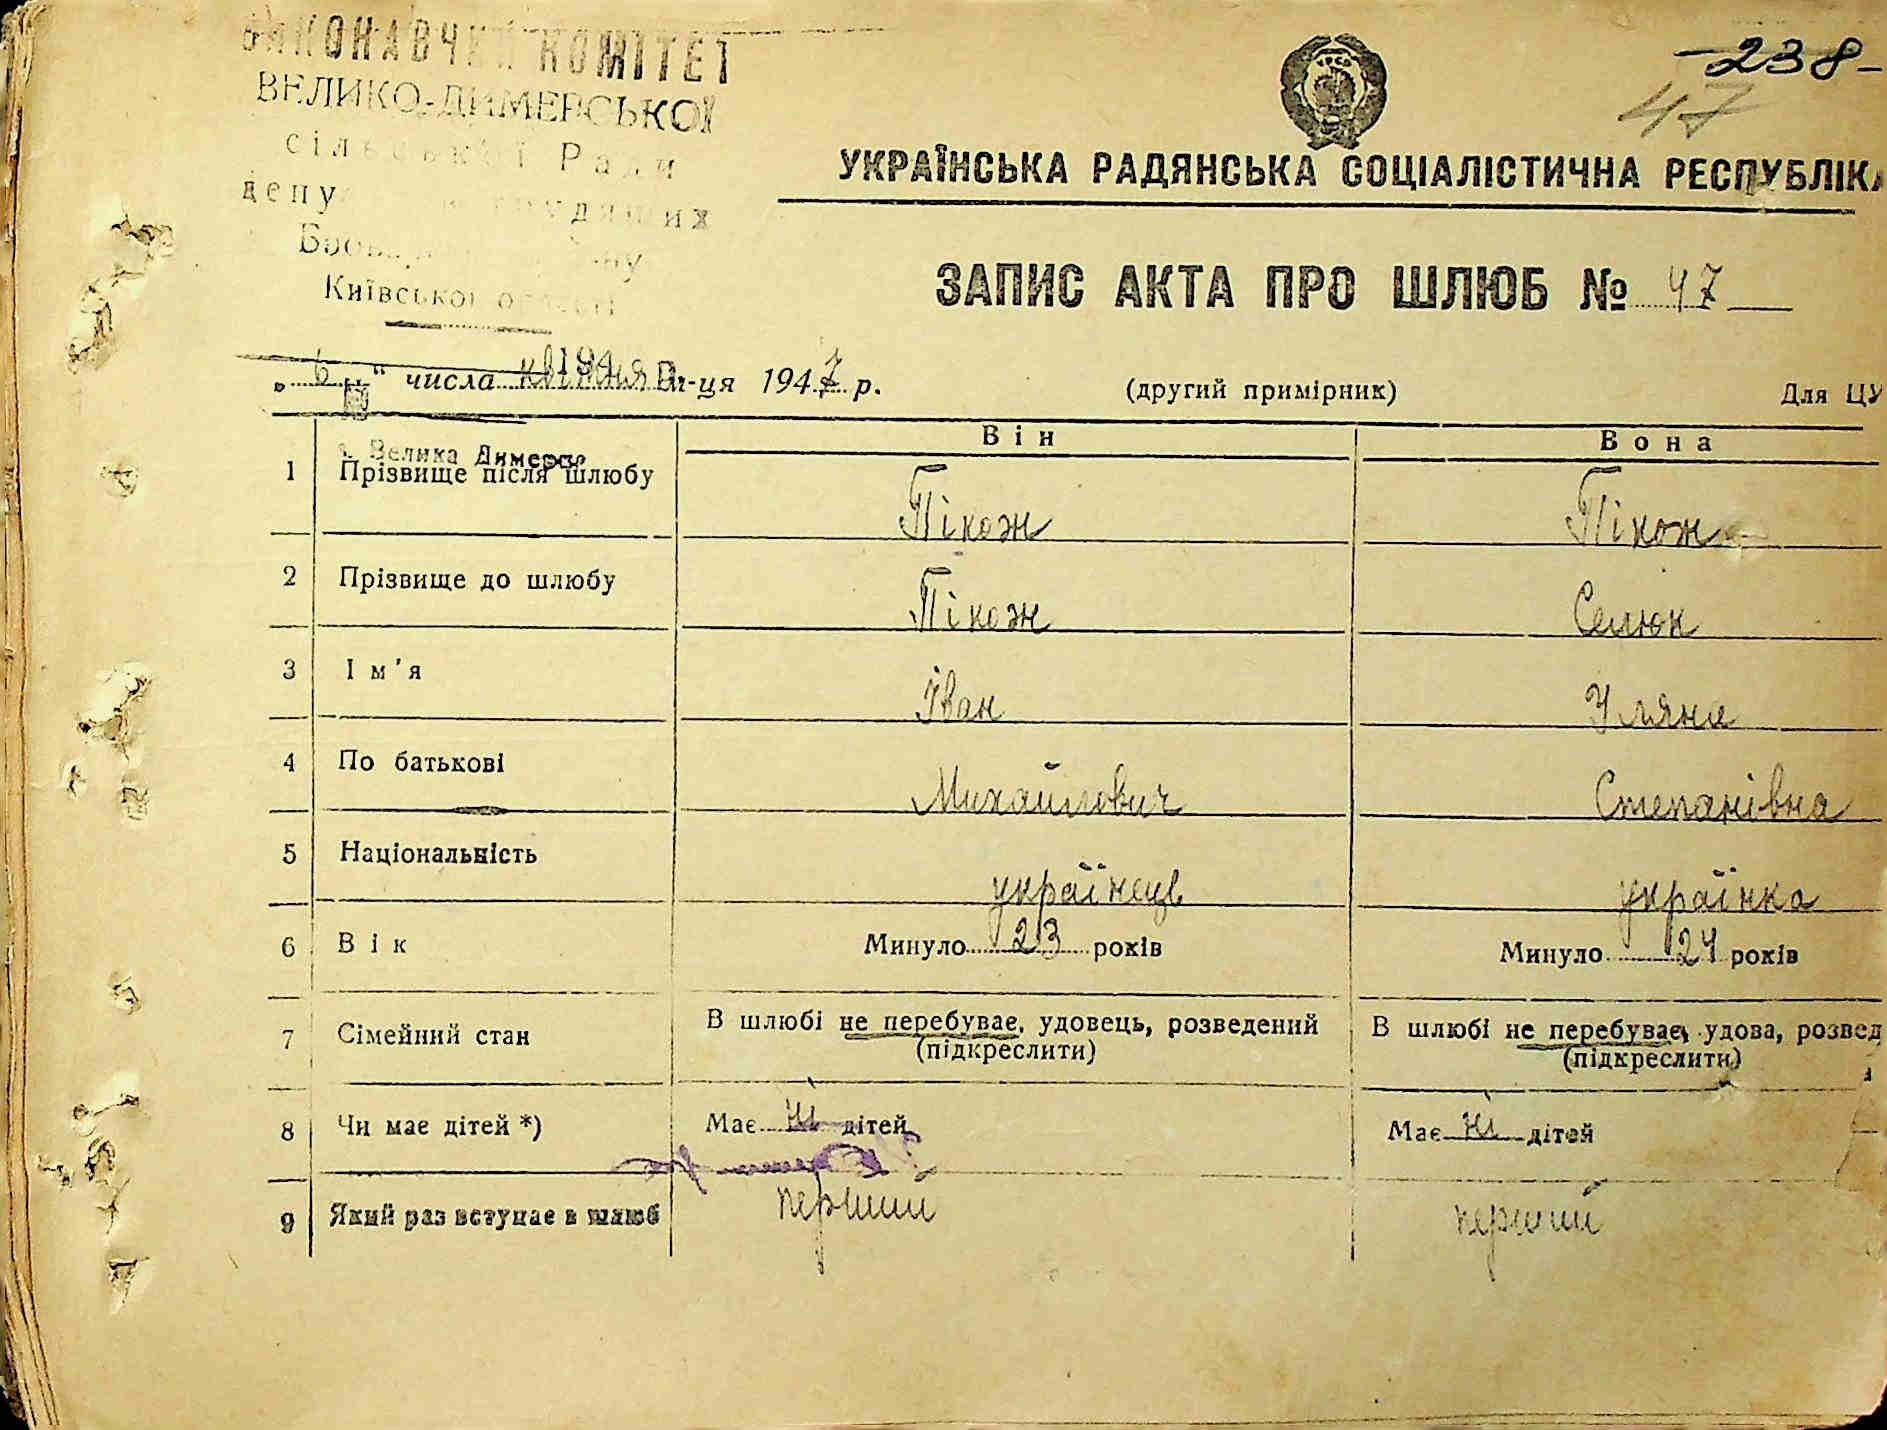 ВИКОНАВЧИЙ КОМІТЕТ
ВЕЛИКО-ДИМЕРСЬКОЇ
сільської Ради
депутатів трудящих
Київської області
-238-
47
УРСР
УКРАЇНСЬКА РАДЯНСЬКА СОЦІАЛІСТИЧНА РЕСПУБЛІКА
ЗАПИС АКТА ПРО ШЛЮБ № 47
„6“ числа квітня м-ця 1947 р. (другий примірник) Для ЦУ
194
с. Велика Димерка
Він Вона
1 Прізвище після шлюбу Пікож Пікож
2 Прізвище до шлюбу Пікож Селюк
3 Ім'я Іван Уляна
4 По батькові Михайлович Степанівна
5 Національність українець українка
6 Вік Минуло 23 років Минуло 24 років
7 Сімейний стан В шлюбі не перебуває, удовець, розведений В шлюбі не перебуває, удова, розвед
(підкреслити) (підкреслити)
8 Чи має дітей *) Має ні дітей Має ні дітей
9 Який раз вступає в шлюб перший перший